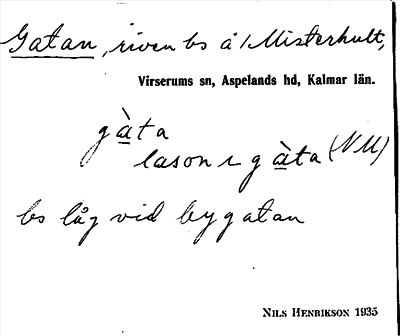 Gatan, riven bs å /Misterhult,
Virserums sn, Aspelands hd, Kalmar län.
gàta
lason r gàta (NM)
bs låg vid bygatan
NILS HENRIKSON 1935